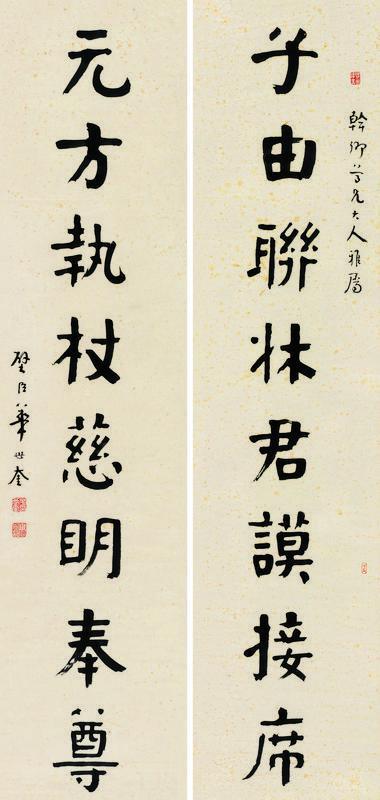 幹卿尊兄大人雅屬
子由聯牀君謨接席
元方執杖慈眀奉尊
璧臣華世奎